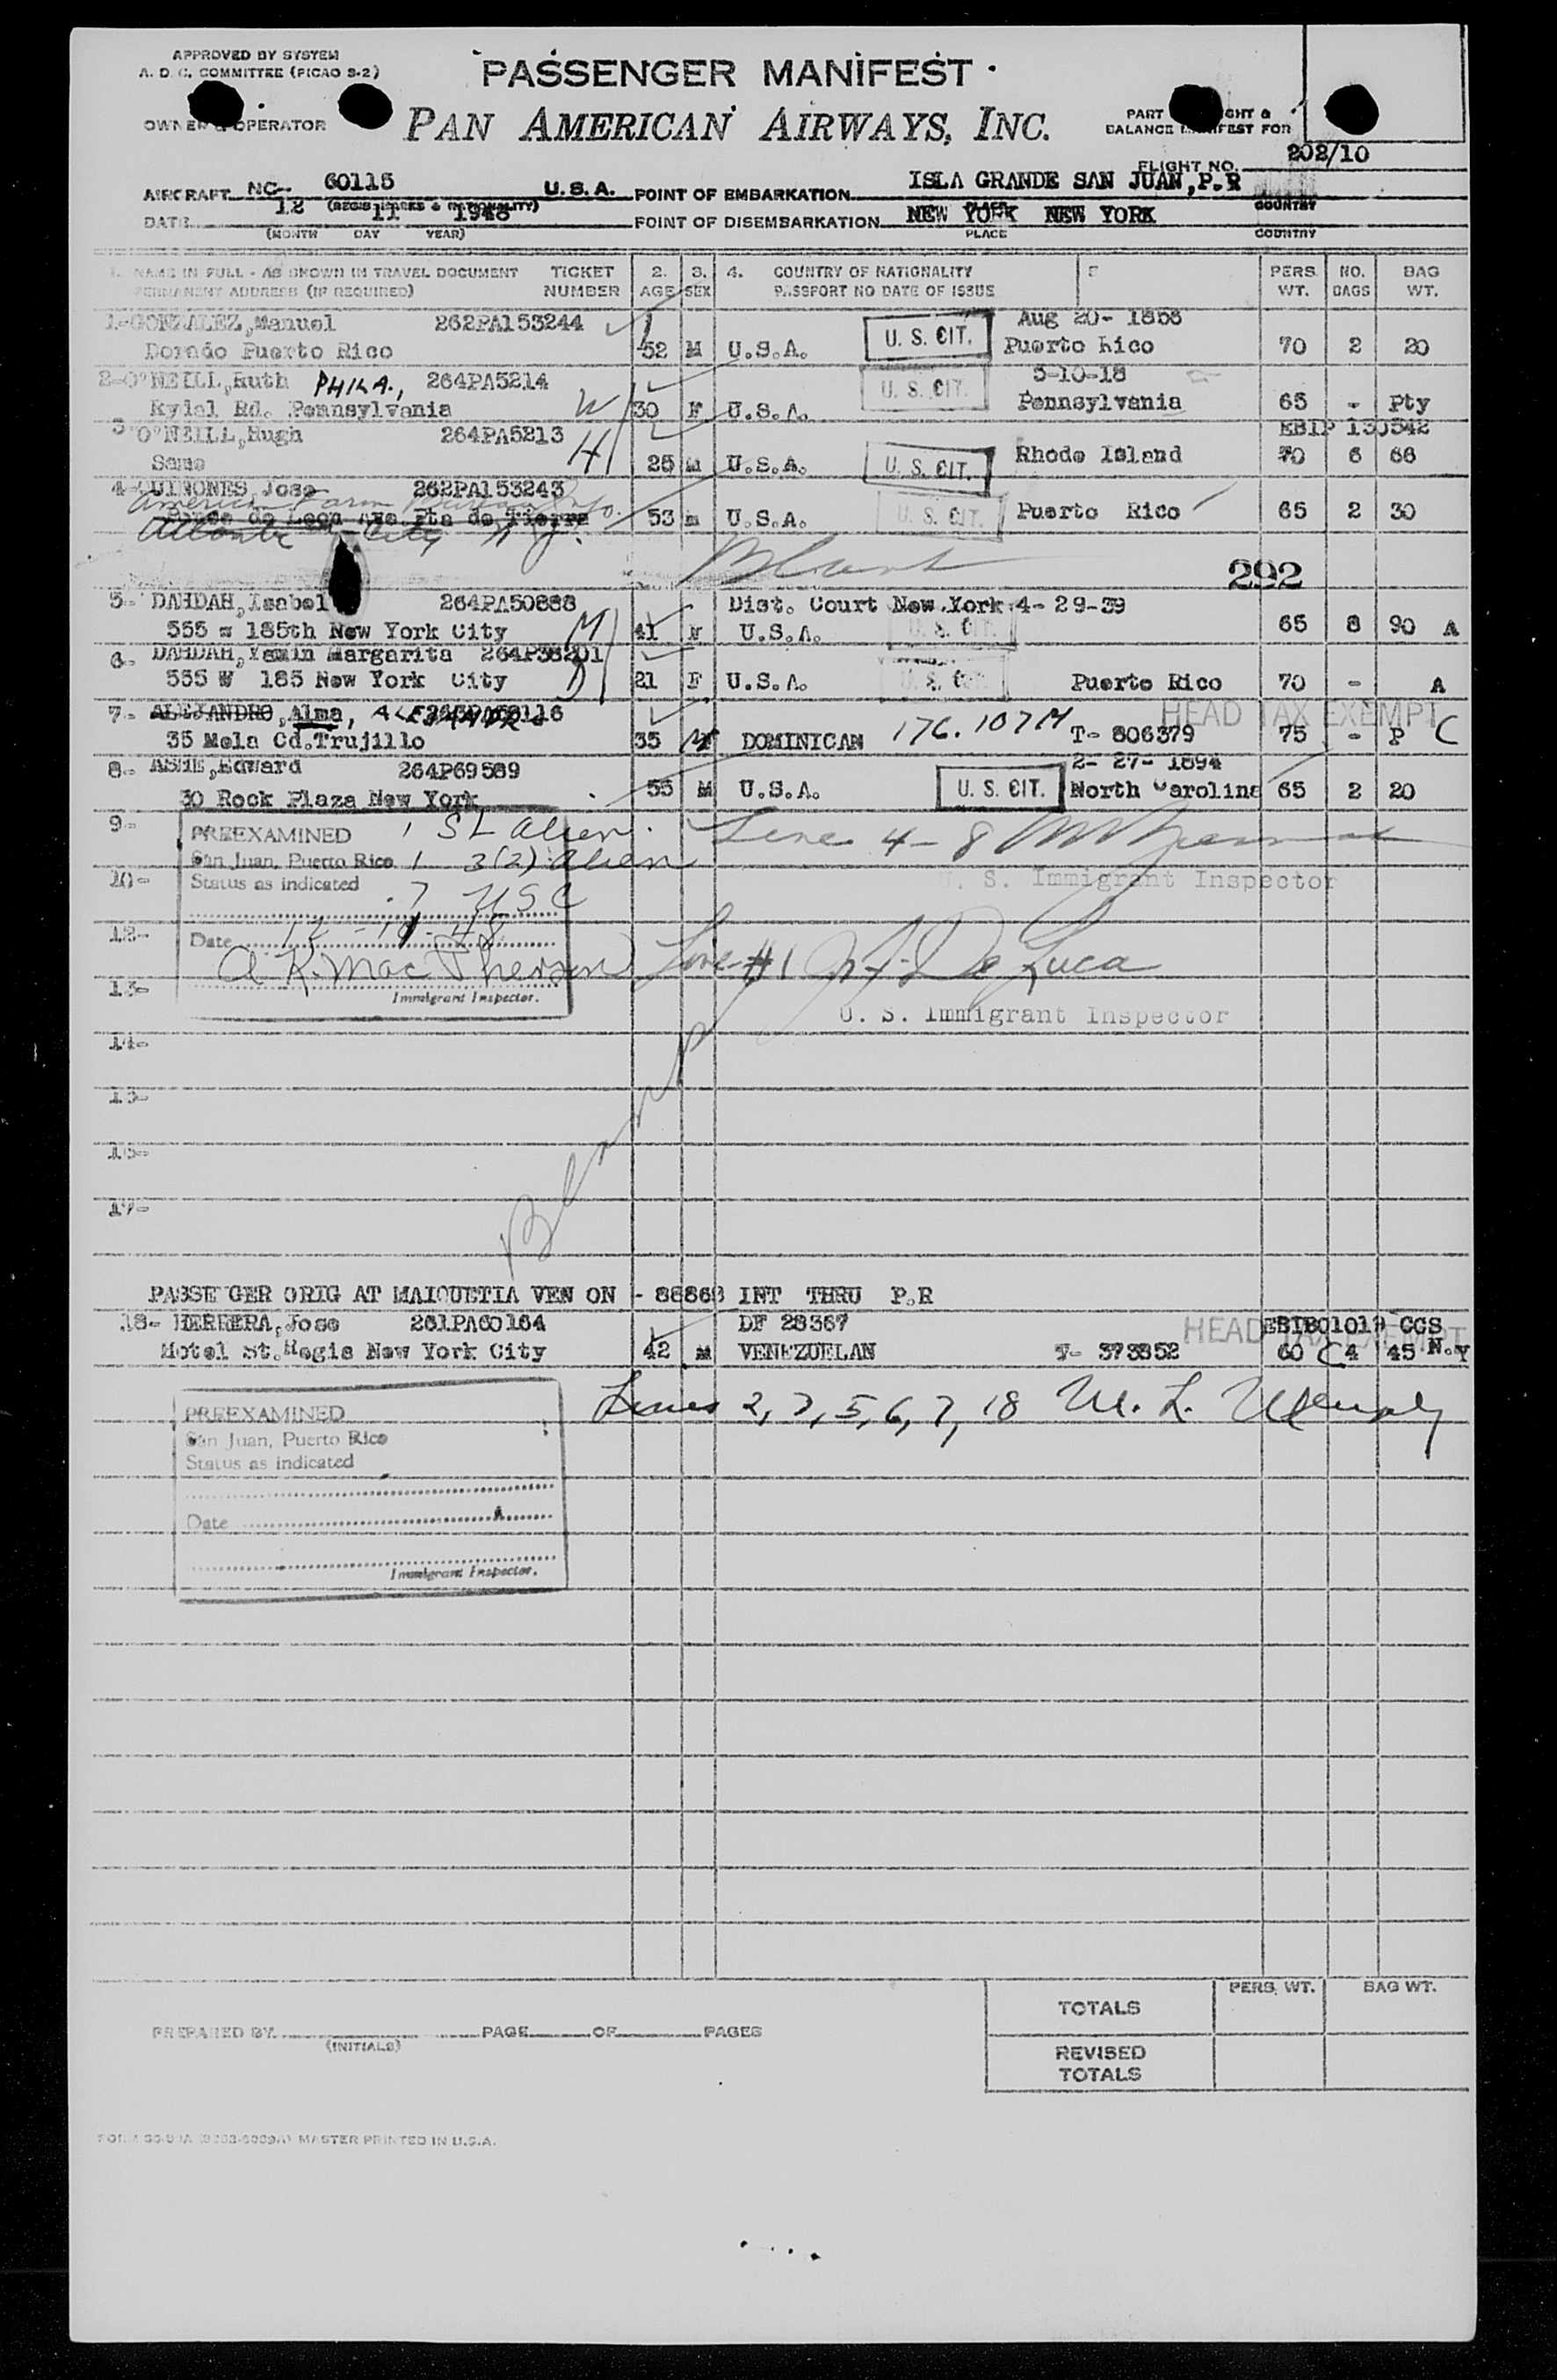 APPROVED BY SYSTEM
A. D. C. COMMITTEE (PICAO S-2)
PASSENGER MANIFEST
OWNER & OPERATOR
PAN AMERICAN AIRWAYS, INC.
PART WEIGHT &
BALANCE MANIFEST FOR
FLIGHT NO. 202/10
AIRCRAFT NC- 60115 U.S.A. POINT OF EMBARKATION ISLA GRANDE SAN JUAN,P.R
(REGIS MARKS & NATIONALITY) COUNTRY
DATE 12 11 1948 POINT OF DISEMBARKATION NEW YORK NEW YORK
(MONTH DAY YEAR) PLACE COUNTRY
1. NAME IN FULL - AS SHOWN IN TRAVEL DOCUMENT TICKET 2. 3. 4. COUNTRY OF NATIONALITY PERS. NO. BAG
PERMANENT ADDRESS (IF REQUIRED) NUMBER AGE SEX PASSPORT NO DATE OF ISSUE WT. BAGS WT.
1-GONZALEZ,Manuel 262PA153244 U. S. CIT. Aug 20-
Dorado Puerto Rico 52 M U.S.A. Puerto Rico 70 2 20
2-O'NEILL,Ruth PHILA., 264PA5214 U. S. CIT. 5-10-18
Rylal Rd. Pennsylvania W 30 F U.S.A. Pennsylvania 65 - Pty
3 O'NEILL,Hugh 264PA5213 EBIP 130542
Same H 25 M U.S.A. U. S. CIT. Rhode Island 70 6 66
4-QUINONES,Jose 262PA153243
American Farm
Ponce de Leon Ave.Pta de Tierra 53 m U.S.A. U. S. CIT. Puerto Rico 65 2 30
Atlantic City N J.
Blank
292
5- DAHDAH,Isabel 264PA50888 Dist. Court New York 4-29-39
555 w 185th New York City M 41 F U.S.A. U. S. CIT. 65 8 90 A
6- DAHDAH,Yamin Margarita 264P38201
555 W 185 New York City D 21 F U.S.A. U. S. CIT. Puerto Rico 70 - A
7- ALEJANDRO,Alma, HEAD TAX EXEMPT
35 Mela Cd.Trujillo 35 DOMINICAN 176.107M T- 806379 75 - P C
8- ASHE,Edward 264P69589 2- 27- 1894
30 Rock Plaza New York 55 M U.S.A. U. S. CIT. North Carolina 65 2 20
9-
PREEXAMINED 1 SL Alien. Lines 4-8
San Juan, Puerto Rico 1 3(2) alien
10- Status as indicated 7 USC U. S. Immigrant Inspector
12- Date 12-11-48
A K. MacPherson Line #1 De Luca
13- Immigrant Inspector.
U. S. Immigrant Inspector
14-
15-
16-
17-
Blank
PASSENGER ORIG AT MAIQUETIA VEN ON - 88868 INT THRU P.R
18- HERRERA,Jose 261PA60164 DF 28367 HEAD TAX EXEMPT EBIB01019 CCS
Hotel St.Regis New York City 42 m VENEZUELAN T- 373852 60 C 4 45 N.Y
Lines 2, 3, 5, 6, 7, 18 M. L.
PREEXAMINED
San Juan, Puerto Rico
Status as indicated
Date
Immigrant Inspector.
PERS. WT. BAG WT.
TOTALS
PREPARED BY PAGE OF PAGES
(INITIALS)
REVISED
TOTALS
MASTER PRINTED IN U.S.A.